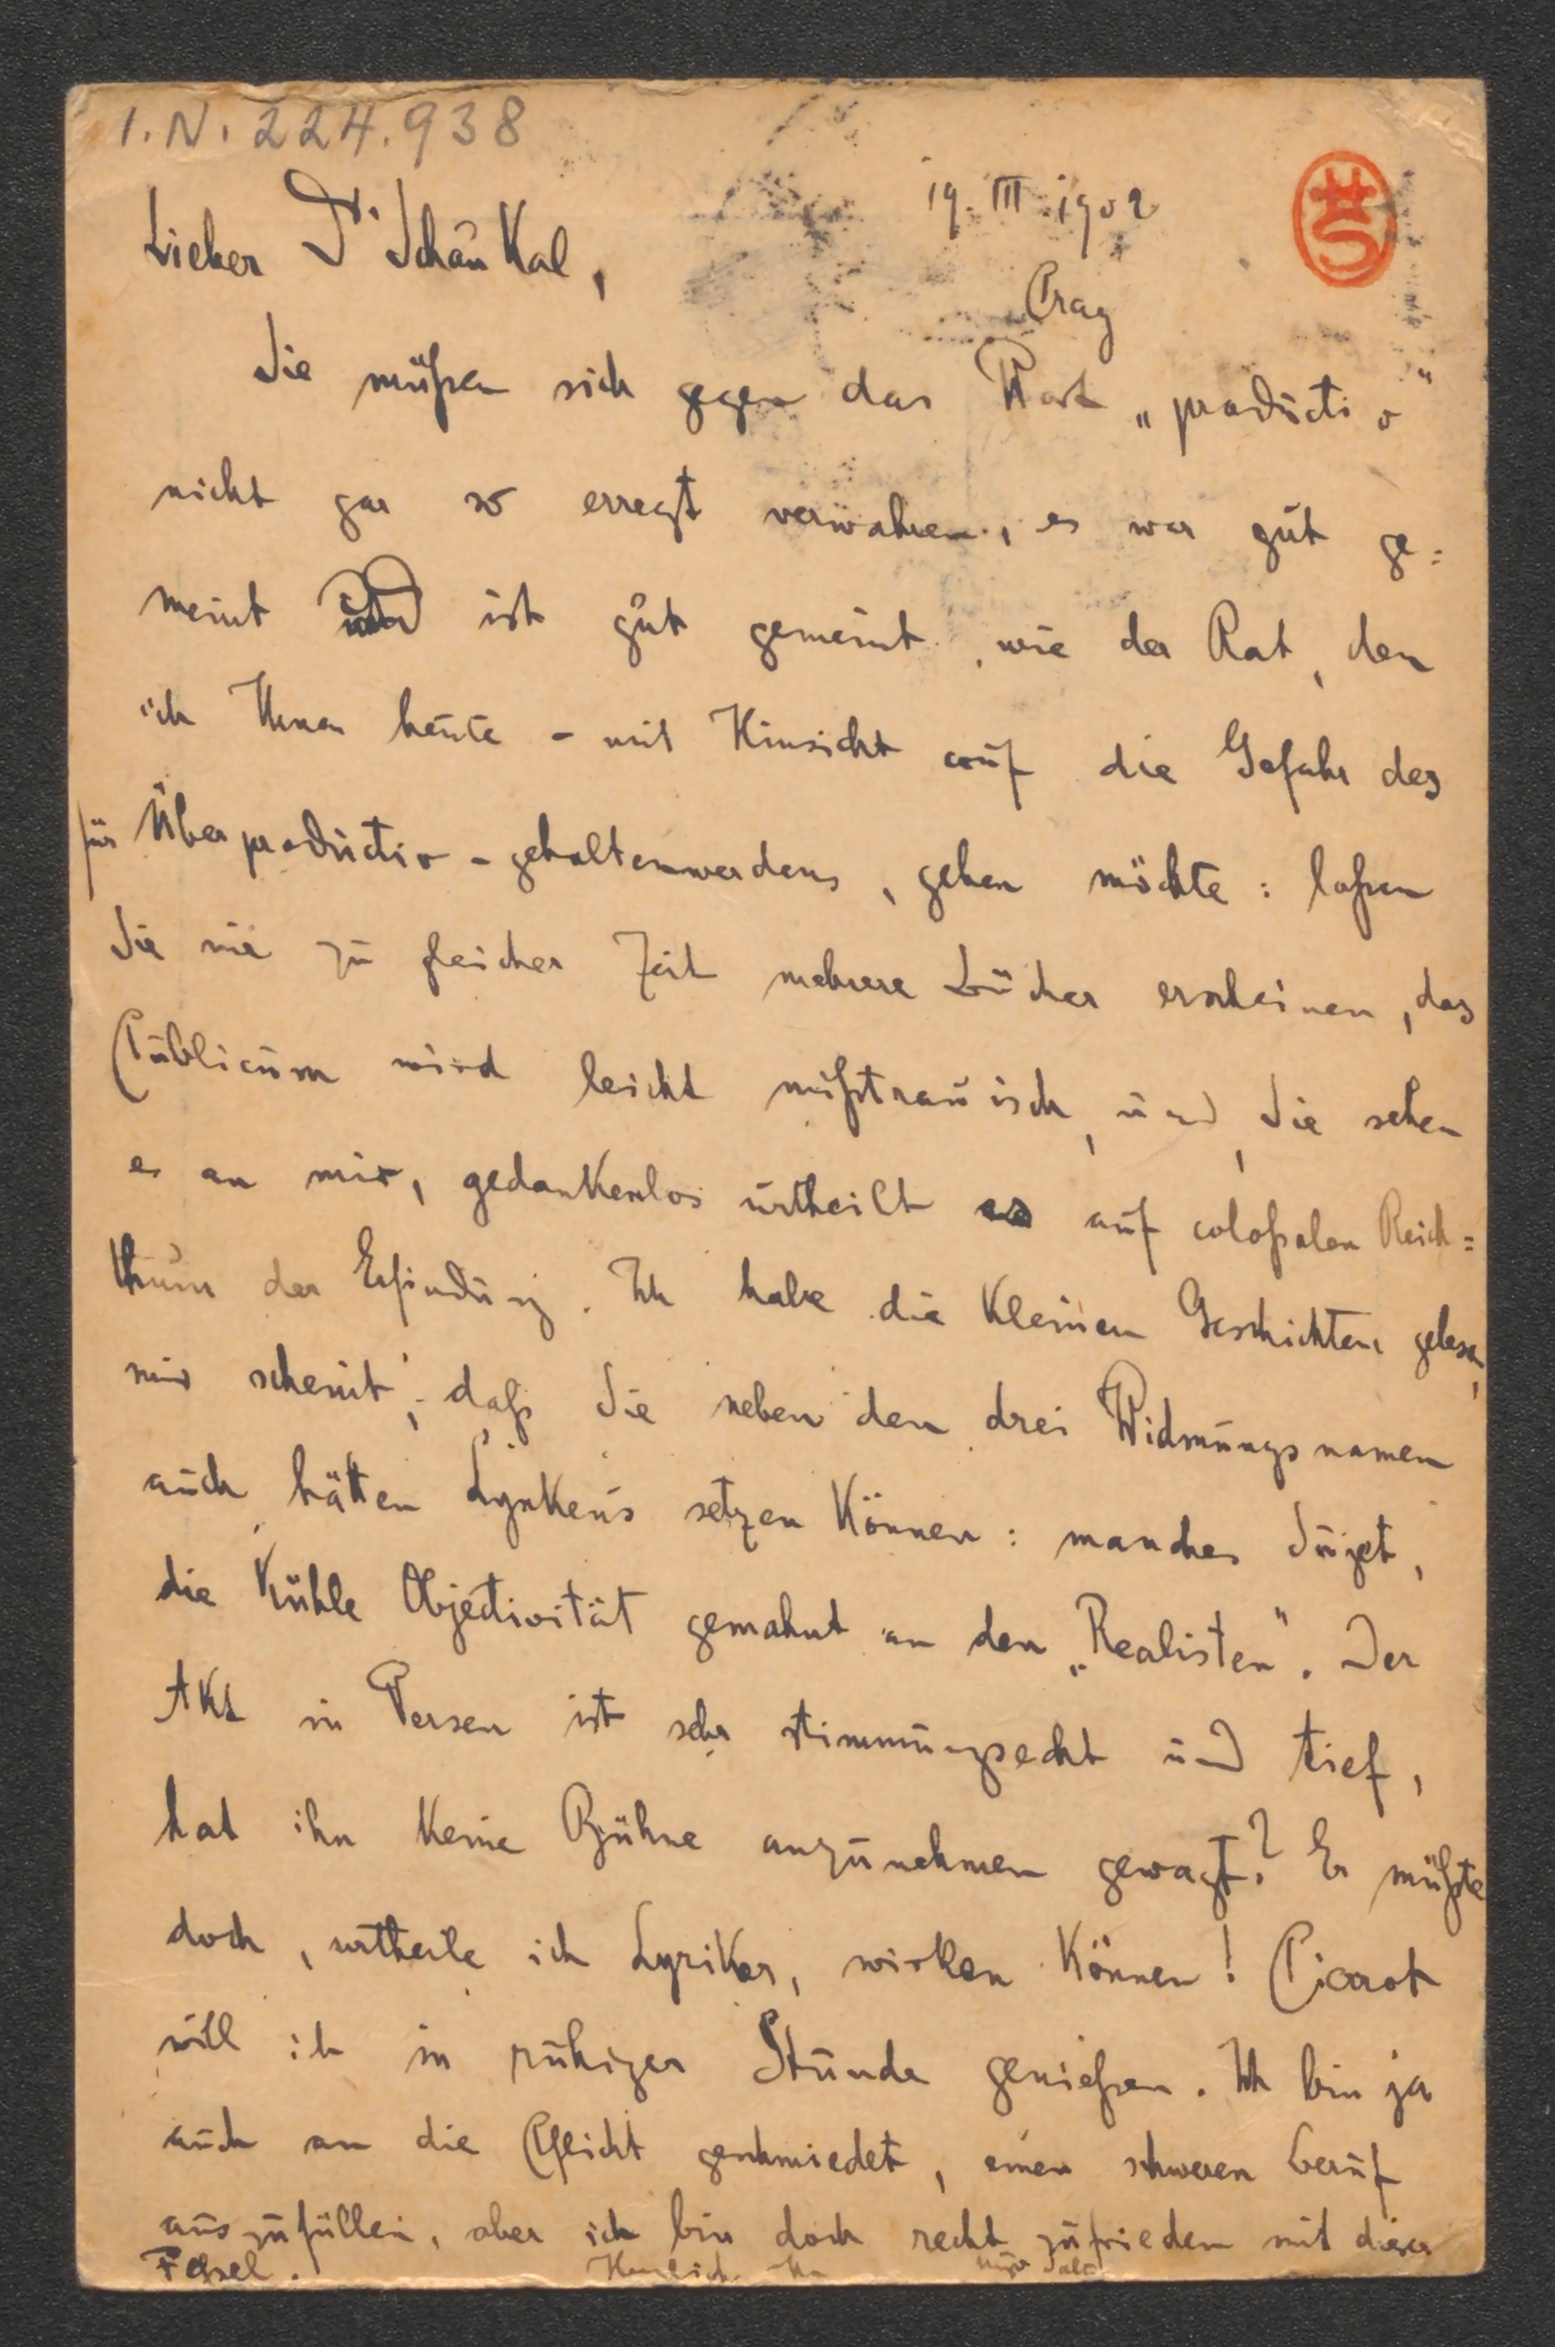 I.N. 224.938
19. III. 1902
Lieber Dr Schaukal,
Prag
Sie müßen sich gegen das Wort „productiv"
nicht gar so erregt verwahren, es war gut ge=
meint und ist gut gemeint, wie der Rat, den
ich Ihnen heute - mit Hinsicht auf die Gefahr des
für Überproductiv-gehaltenwerdens, geben möchte: laßen
Sie nie zu gleicher Zeit mehrere Bücher erscheinen, das
Publicum wird leicht mißtrauisch, und, Sie sehen
es an mir, gedankenlos urtheilt es auf coloßalen Reich=
thum der Erfindung. Ich habe die kleinen Geschichten gelesen,
mir scheint, daß Sie neben den drei Widmungsnamen
auch hätten Lynkeus setzen können: manches Sujet,
die kühle Objectivität gemahnt an den „Realisten". Der
Akt in Versen ist sehr stimmungsecht und tief,
hat ihn keine Bühne anzunehmen gewagt? Er müßte
doch, urtheile ich Lyriker, wirken können! Pierrot
will ich in ruhiger Stunde genießen. Ich bin ja
auch an die Pflicht geschmiedet, einen schweren Beruf
auszufüllen, aber ich bin doch recht zufrieden mit dieser
Feßel. Herzlich Ihr Hugo Salus